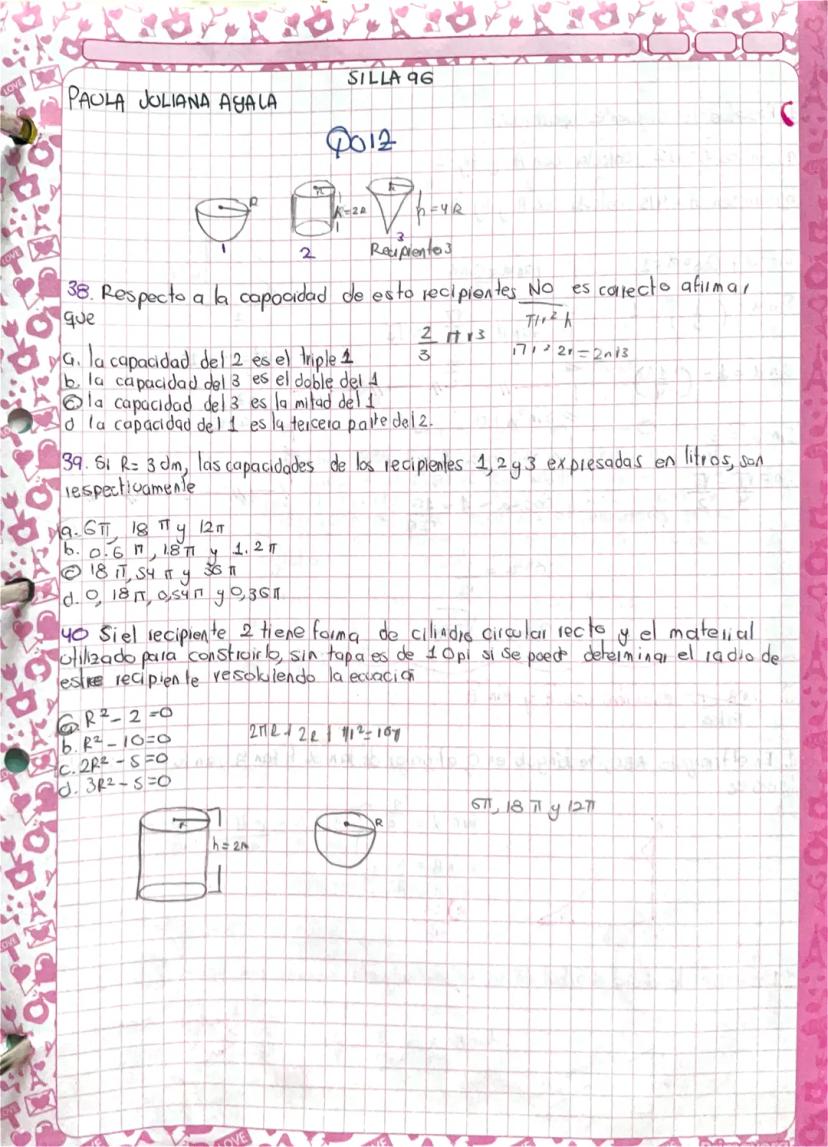 SILLA 96
PAULA JULIANA AYALA
QUIZ
R
r
h=2R
R
h=4R
1
2
3
Recipiente 3
38. Respecto a la capacidad de esto recipientes NO es correcto afirmar
que
πr² h
2/3 π r3
πr² 2r = 2πr3
a. la capacidad del 2 es el triple 1
b. la capacidad del 3 es el doble del 1
c la capacidad del 3 es la mitad del 1
d la capacidad del 1 es la tercera parte del 2.
39. Si R= 3 dm, las capacidades de los recipientes 1,2 y 3 expresadas en litros, son
respectivamente
a. 6π, 18 π y 12π
b. 0.6 π, 1.8π y 1.2 π
c 18 π, 54 π y 36 π
d. 0, 18π, 0,54π y 0,36π
40 Si el recipiente 2 tiene forma de cilindro circular recto y el material
utilizado para construirlo, sin tapa es de 10pi si se puede determinar el radio de
este recipiente resolviendo la ecuación
a. R² - 2 =0
b. R² - 10=0
c. 2R² - 5=0
d. 3R² - 5=0
6π, 18 π y 12π
r
h = 2R
R